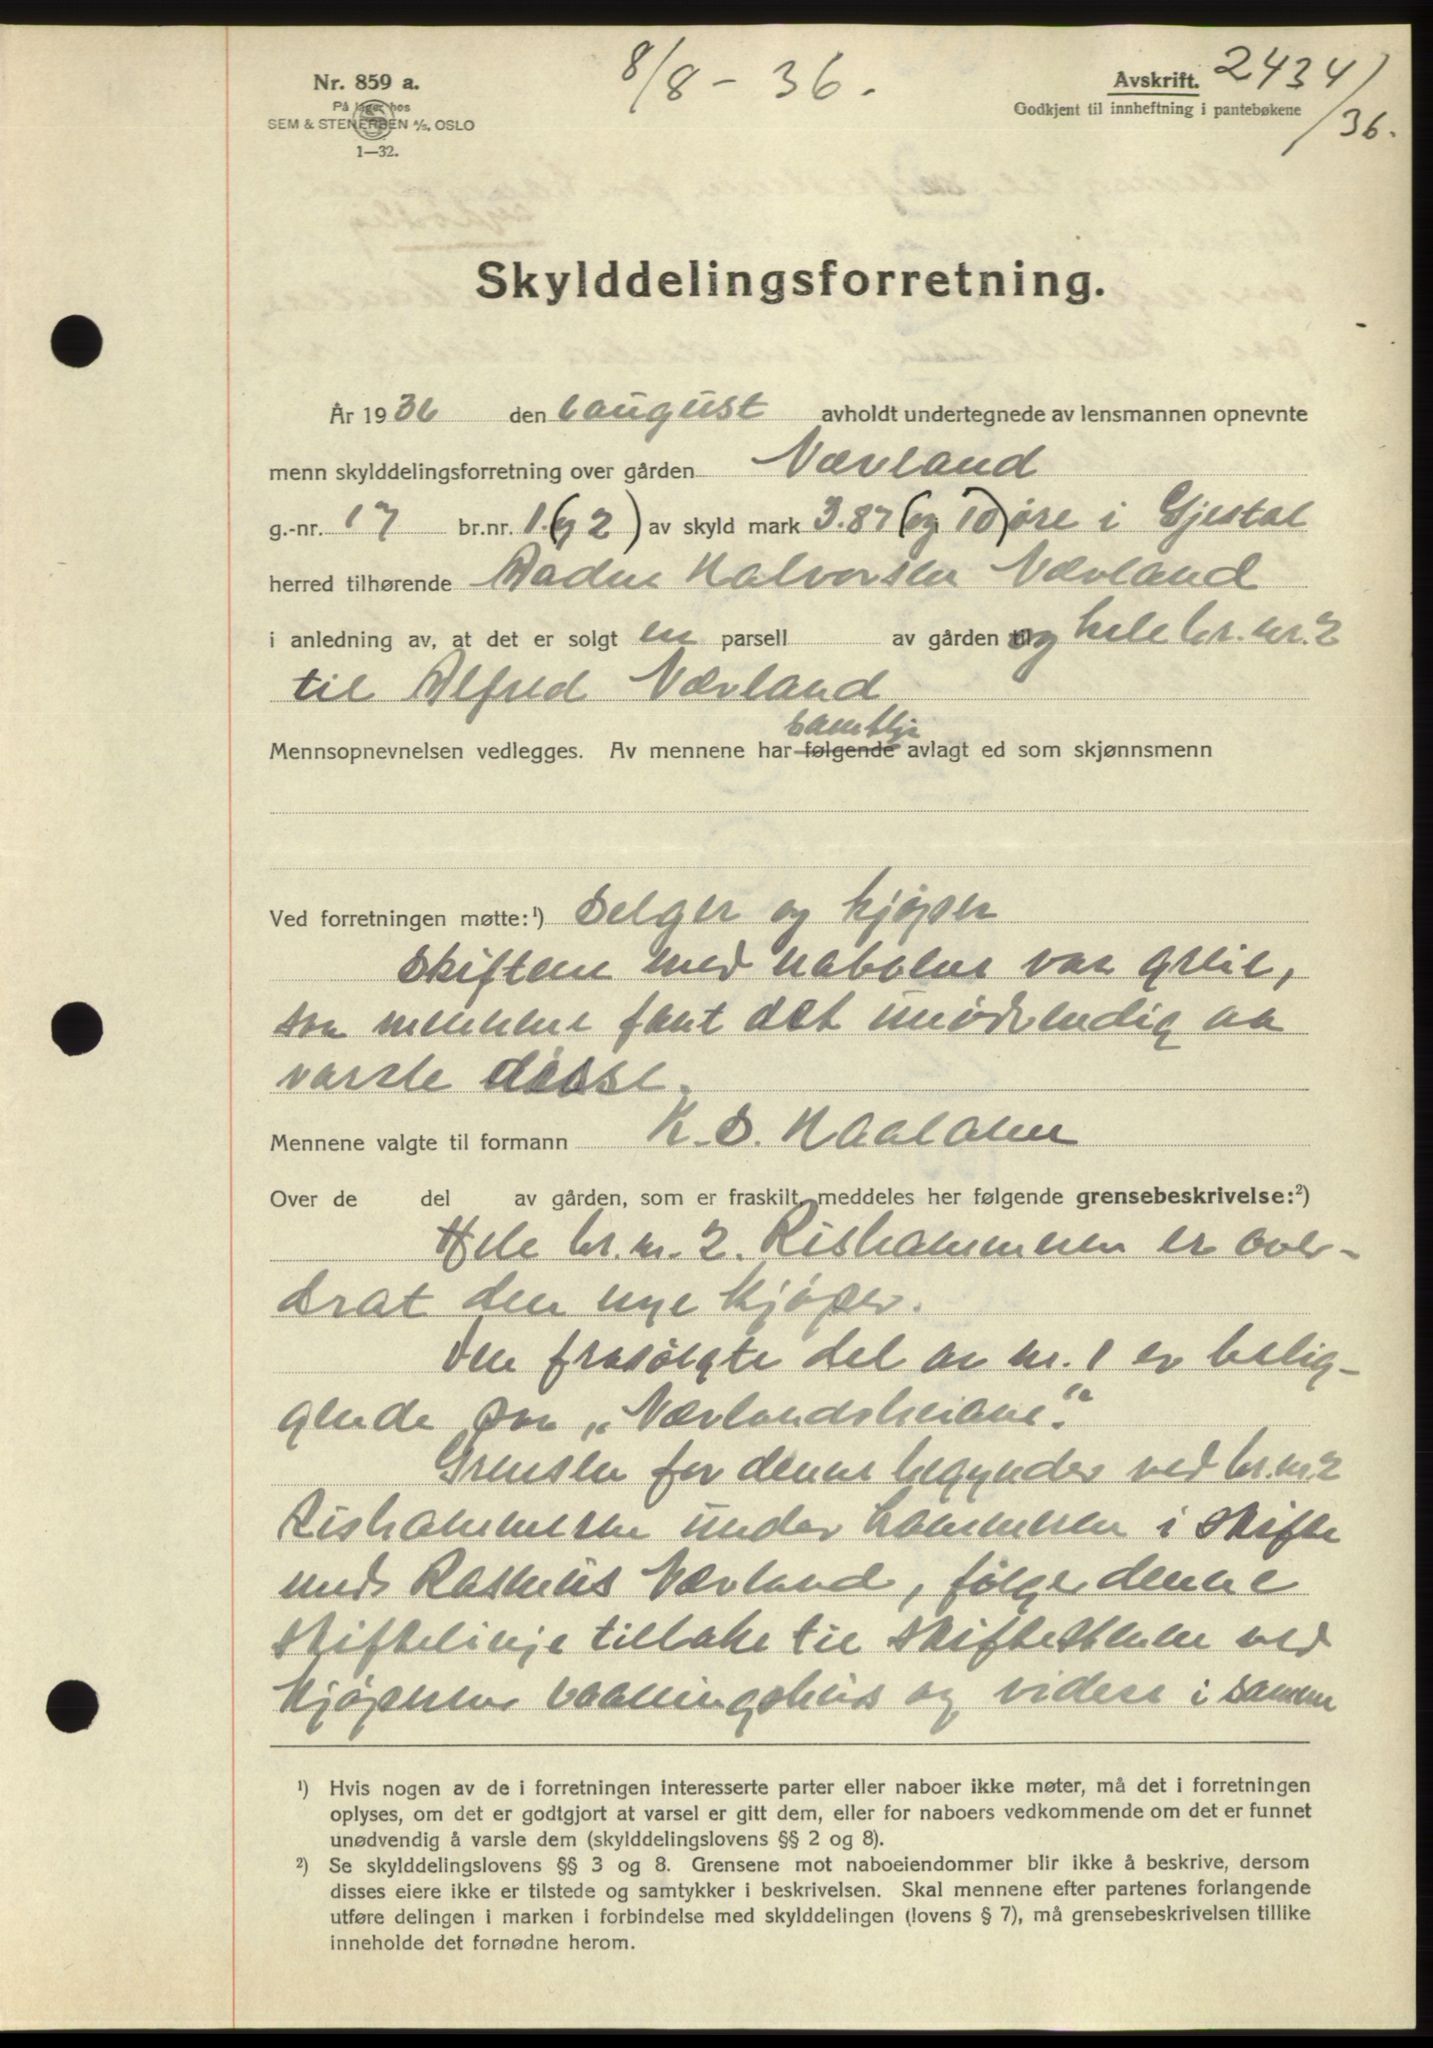 Nr. 859 a.
På lager hos
SEM & STENERSEN A/S, OSLO
1—32.
8/8 - 36.
Avskrift.
Godkjent til innheftning i pantebøkene
2434/36.
Skylddelingsforretning.
År 1936 den 6 august avholdt undertegnede av lensmannen opnevnte
menn skylddelingsforretning over gården Nævland
g.-nr. 17 br.nr. 1.(og 2) av skyld mark 3.87 (og 10) øre i Gjestal
herred tilhørende Aadne Halvorsen Nævland
i anledning av, at det er solgt en parsell av gården og hele br.nr. 2
til Alfred Nævland
Mennsopnevnelsen vedlegges. Av mennene har følgende samtlige avlagt ed som skjønnsmenn
Ved forretningen møtte:¹) Selger og kjøper
Skiftene med naboene var greie,
saa mennene fant det unødvendig aa
varsle disse.
Mennene valgte til formann K. S. Haaland
Over de del av gården, som er fraskilt, meddeles her følgende grensebeskrivelse:²)
Hele br.nr. 2. Rishammeren er over-
drat den nye kjøper.
Den frasolgte del av nr. 1 er belig-
gende paa „Nævlandsheiane".
Grensen for denne begynder ved br.nr. 2
Rishammeren under hammeren i skifte
med Rasmus Nævland, følger denne
skiftelinje tilbake til skiftestenen ved
kjøperens vaaningshus og videre i samme
¹) Hvis nogen av de i forretningen interesserte parter eller naboer ikke møter, må det i forretningen
oplyses, om det er godtgjort at varsel er gitt dem, eller for naboers vedkommende om det er funnet
unødvendig å varsle dem (skylddelingslovens §§ 2 og 8).
²) Se skylddelingslovens §§ 3 og 8. Grensene mot naboeiendommer blir ikke å beskrive, dersom
disses eiere ikke er tilstede og samtykker i beskrivelsen. Skal mennene efter partenes forlangende
utføre delingen i marken i forbindelse med skylddelingen (lovens § 7), må grensebeskrivelsen tillike
inneholde det fornødne herom.